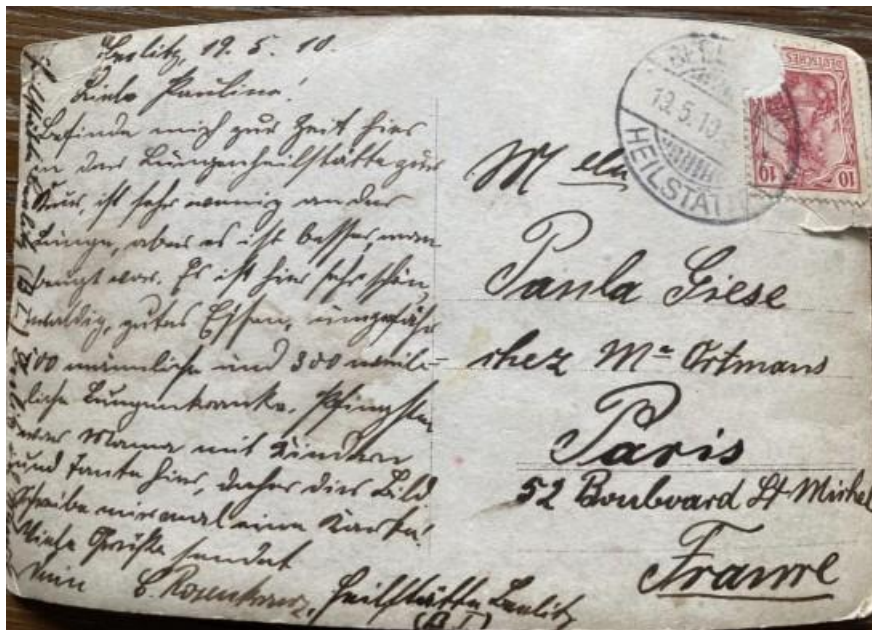 Beelitz, 19. 5. 10.
Liebe Paulina!
Befinde mich zur Zeit hier
in der Lungenheilstätte zur
Kur, ist sehr wenig an der
Lunge, aber es ist besser, man
beugt vor. Es ist hier sehr schön,
waldig, gutes Essen, ungefähr
500 männliche und 300 weib-
liche Lungenkranke. Pfingsten
war Mama mit Kindern
und Tante hier, daher dies Bild
Schreibe mir mal eine Karte!
Viele Grüße sendet
Dein C. Rosenkranz, Heilstätte Beelitz
(B I)
Melle
Paula Giese
chez Mr Ortmans
Paris
52 Boulevard St Michel
France
19.5.10
HEILSTÄTT
DEUTSCHES
10 10